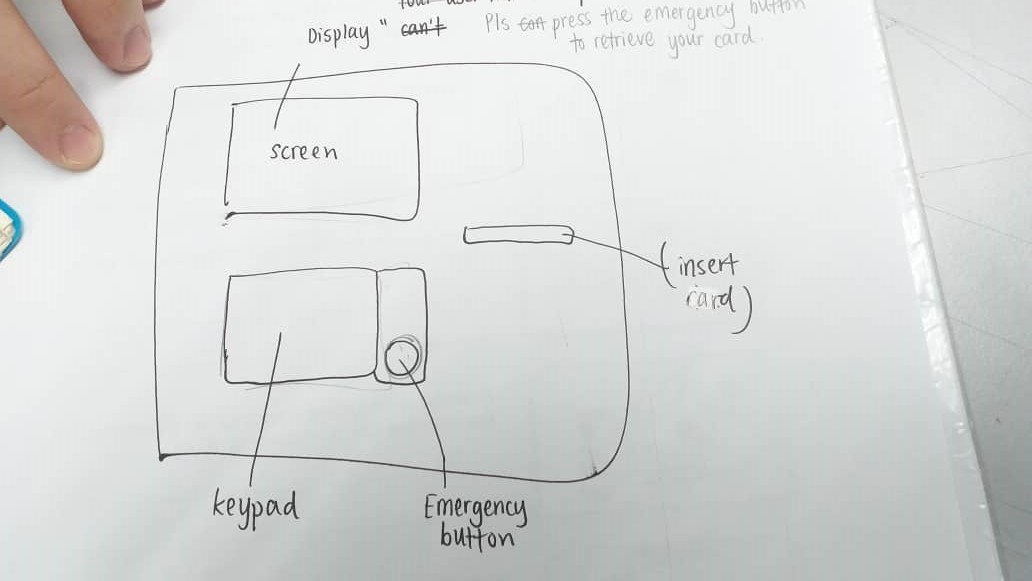 Display " can't Pls can press the emergency button
to retrieve your card.
screen
(insert
card)
keypad
Emergency
button